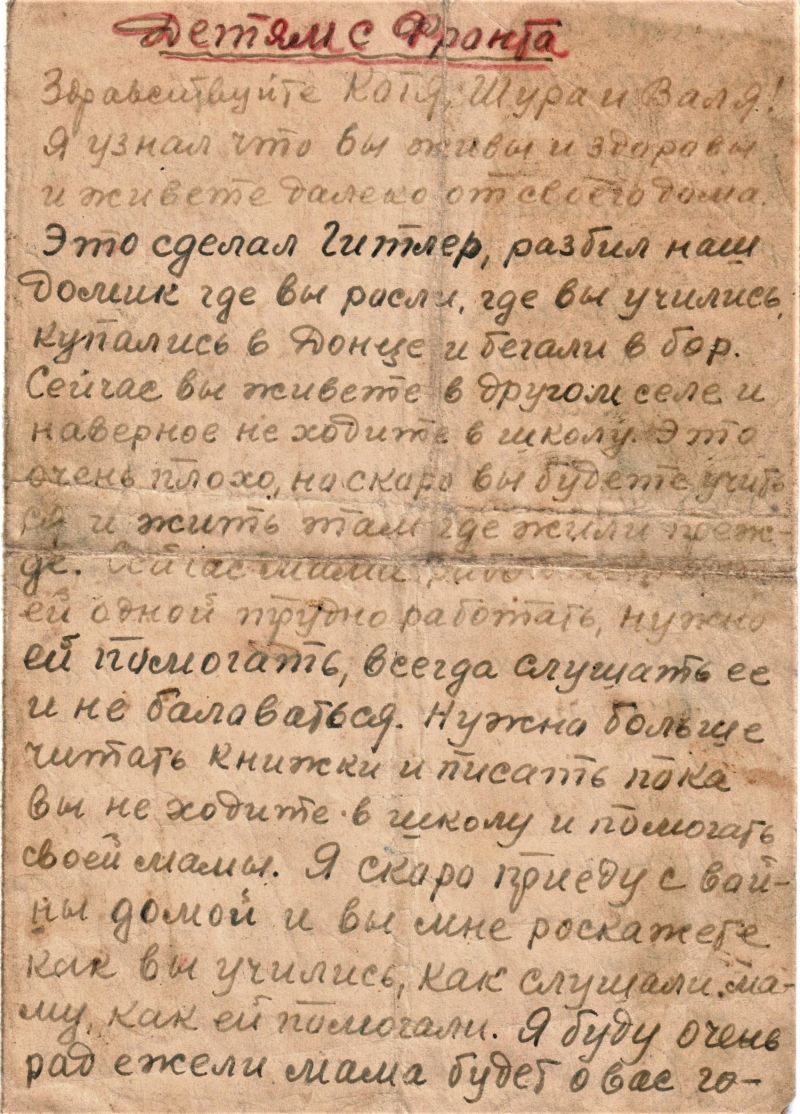 Детям с Фронта
Здравствуйте Катя, Шура и Валя!
Я узнал что вы живы и здоровы
и живете далеко от своего дома.
Это сделал Гитлер, разбил наш
домик где вы росли, где вы учились,
купались в Донце и бегали в бор.
Сейчас вы живете в другом селе и
наверное не ходите в школу. Это
очень плохо, но скаро вы будете учить
ся и жить там где жили преж-
де. Сейчас мама
ей одной трудно работать, нужно
ей помогать, всегда слушать ее
и не балаваться. Нужна больше
читать книжки и писать пока
вы не ходите в школу и помогать
своей мамы. Я скаро приеду с вай-
ны домой и вы мне роскажете
как вы учились, как слушали ма-
му, как ей помогали. Я буду очень
рад ежели мама будет о вас го-